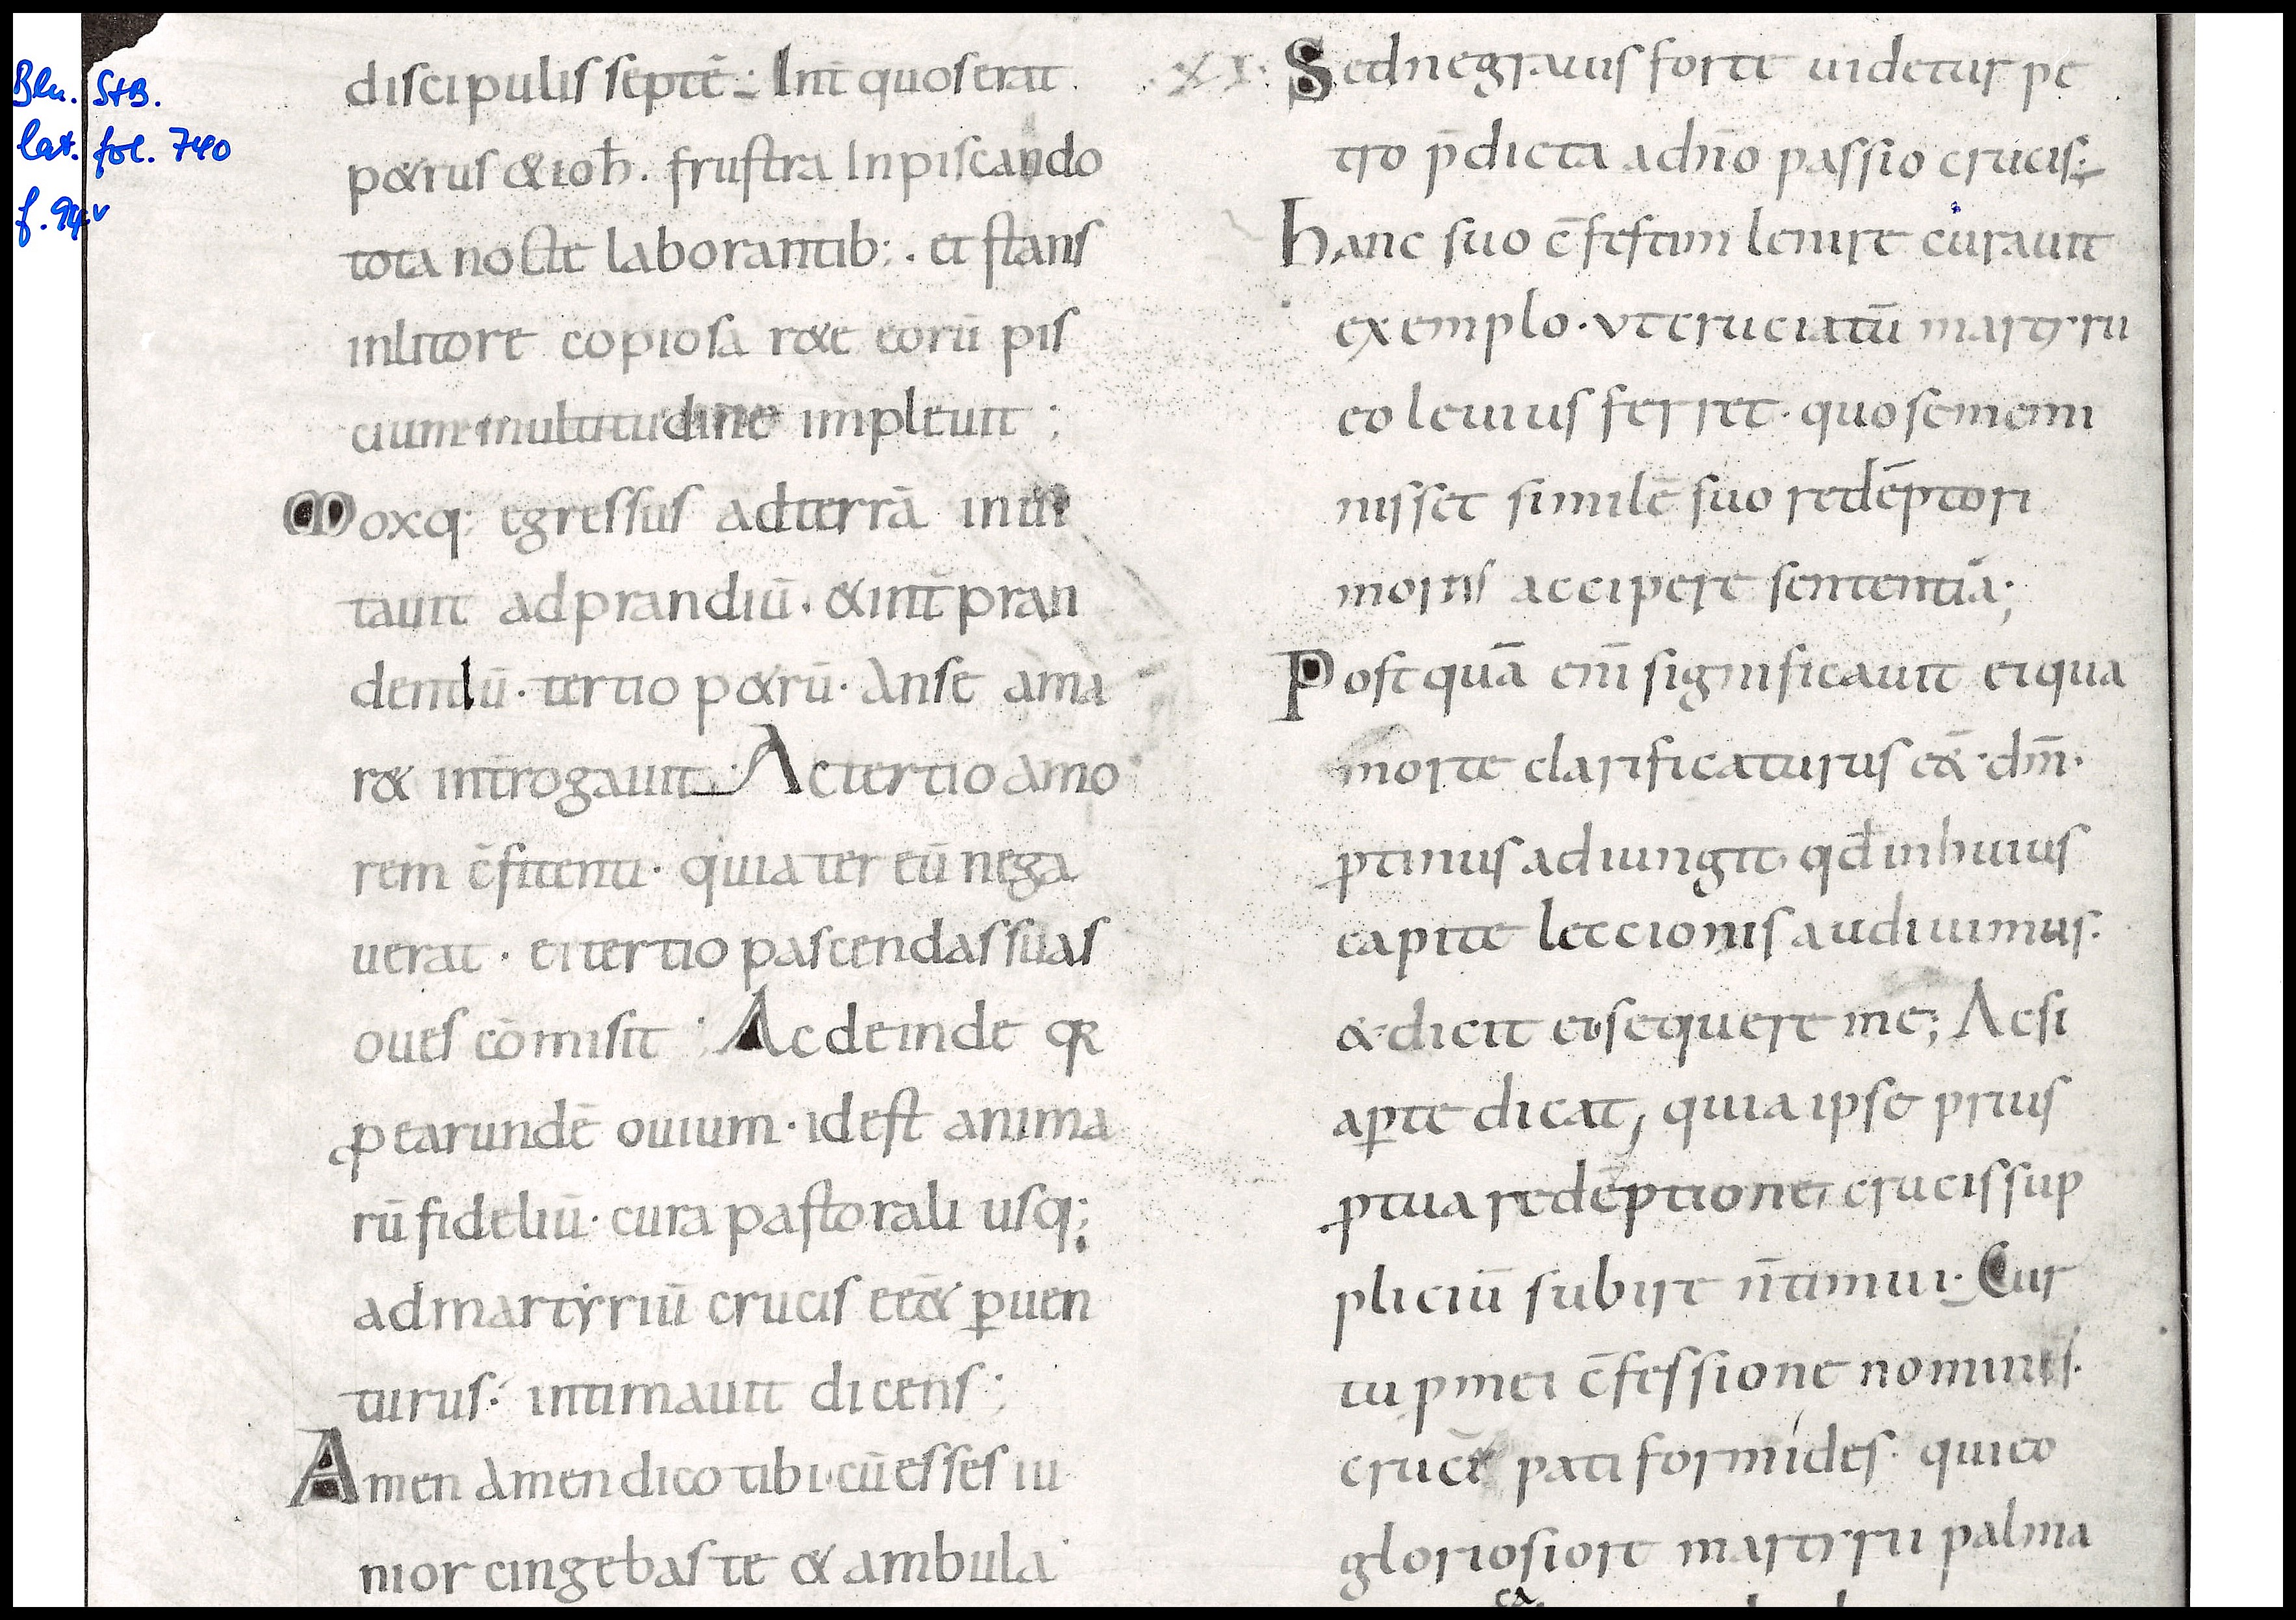 Bln. StB.
lat. fol. 740
f. 94v
discipulis septē; Int̄ quos erat
p&rus & ioh̄. frustra In piscando
tota nocte laborantib:. et stans
in litore copiosa r&e eorū pis
cium multitudine impleuit;
Moxq: egressus ad terrā inui
tauit ad prandiū. & int̄ pran
dendū. tertio p&rū. An se ama
r& int̄rogauit; Ac tertio amo
rem c̄fitenti. quia ter eū nega
uerat. ei tertio pascendas suas
oues cōmisit; Ac deinde qR
p earundē ouium. id est anima
rū fideliū. cura pastorali usq;
ad martyriū crucis eēt p̱uen
turus: intimauit dicens;
Amen Amen dico tibi. cū esses iu
nior cingebas te & ambula
XI. Sed ne grauis forte uidetur pe
tro p̄dicta ad hn̄o passio crucis;
Hanc suo c̄festim lenire curauit
exemplo. vt cruciatū martyrii
eo leuius ferret. quo se memi
nisset similē suo redēptori
mortis accipere sententiā;
Postquā eni͂ significauit ei qua
morte clarificaturus eēt. dm̄.
p̱tinus adiungit qd̄ in huius
capite leccionis audiuimus.
& dicit ei. sequere me; Ac si
ap̱te dicat, quia ipse prius
p tua redēptione, crucis sup
pliciū subire n̄ timui. Cur
tu p mei c̄fessione nominis.
crucē pati formides. qui eo
gloriosiore martyrii palma